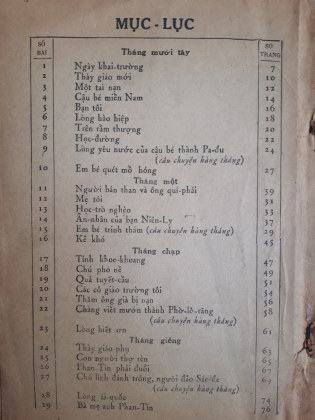 MỤC-LỤC
SỐ BÀI
SỐ TRANG
Tháng mười tây
1 Ngày khai-trường 7
2 Thầy giáo mới 10
3 Một tai nạn 12
4 Cậu bé miền Nam 14
5 Bạn tôi 16
6 Lòng hào hiệp 18
7 Trên rầm thượng 20
8 Học-đường 22
9 Lòng yêu nước của cậu bé thành Pa-đu 24
(câu chuyện hàng tháng)
10 Em bé quét mồ hóng 27
Tháng một
11 Người bán than và ông quí-phái 39
12 Mẹ tôi
13 Học-trò nghèo
14 Ân-nhân của bạn Niên-Ly 37
15 Em bé trinh thám (câu chuyện hàng tháng) 29
16 Kẻ khó 45
Tháng chạp
17 Tính khoe-khoang 47
18 Chú phó nề 49
19 Quả tuyết-cầu 51
20 Các cô giáo trường tôi 54
21 Thăm ông giả bị nạn 56
22 Chàng viết mướn thành Phờ-lô-răng 58
(câu chuyện hàng tháng)
23 Lòng biết ơn 61
Tháng giêng
24 Thầy giáo phụ 63
25 Con người thợ rèn 65
26 Phan-Tin phải đuổi 67
27 Chú lích đánh trống, người đảo Sác-đe
(câu chuyện hàng tháng) 69
28 Lòng ái-quốc 74
29 Bà mẹ anh Phan-Tin 76